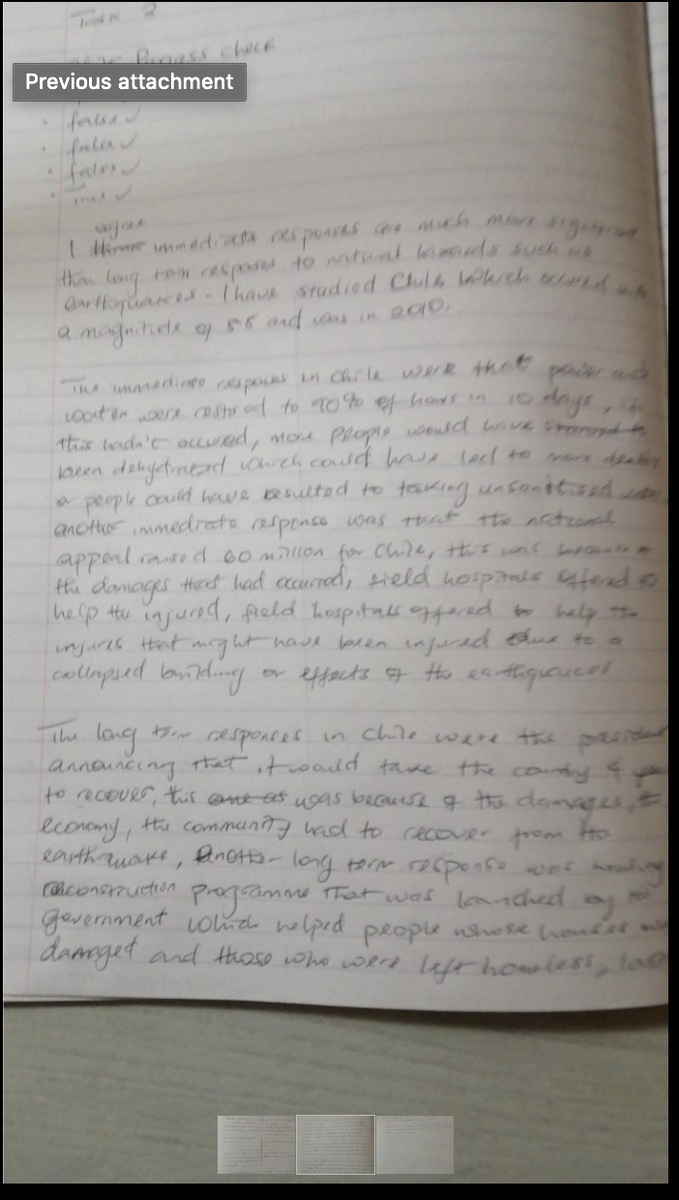 Task 2
Progress check
Previous attachment
• false ✓
• false ✓
• false ✓
• True ✓
agree
I immediate responses are much more significant
than long term resposes to natural hazards such as
earthquakes - I have studied Chile which occured with
a magnitide of 8.8 and was in 2010.
The immediate respoces in Chile were that power and
water were restored to 90% of homes in 10 days, if
this hadn't occured, more people would have
been dehydrated which could have led to more deaths
or people could have resulted to taking unsanitised water
another immediate response was that the national
appeal raised 60 million for Chile, this was because of
the damages that had occurred, field hospitals offered to
help the injured, field hospitals offered to help the
injures that might have been injured due to a
collapsed building or effects of the earthquake
The long term responses in Chile were the president
announcing that it would take the country 4
to recover, this was because of the damages, the
economy, the community had to recover from the
earthquake, Another long term response was housing
reconstruction programme that was launched by the
government which helped people whose houses
damaged and those who were left homeless,